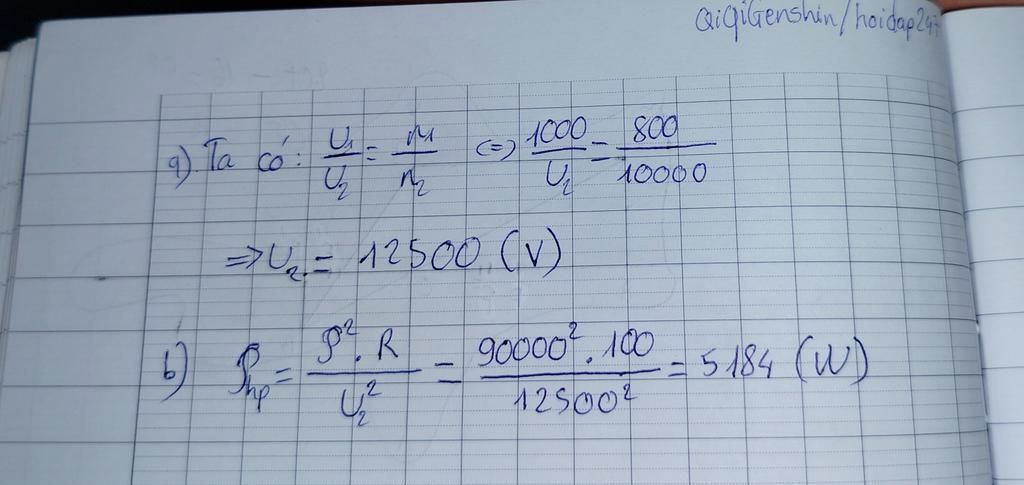 QiQiGenshin/hoidap247
a) Ta có: U₁/U₂ = n₁/n₂ <=> 1000/U₂ = 800/10000
=> U₂ = 12500 (V)
b) 𝒫hp = 𝒫².R/U₂² = 90000².100/12500² = 5184 (W)